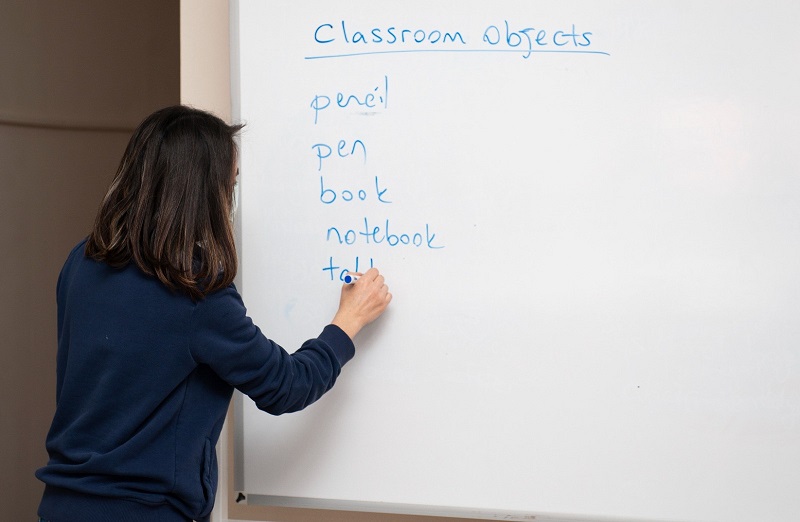 Classroom Objects
pencil
pen
book
notebook